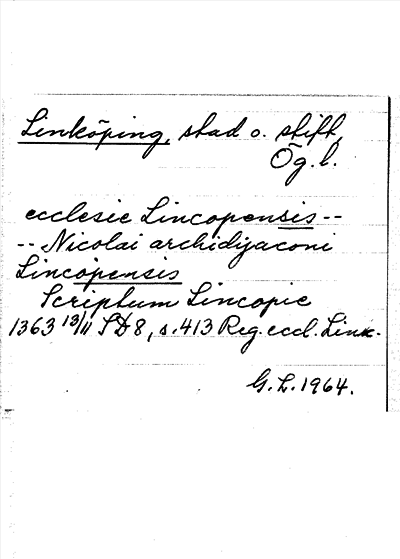 Linköping, stad o. stift,
Ög. l.
ecclesie Lincopensis --
-- Nicolai archidijaconi
Lincopensis
Scriptum Lincopie
1363 13/11 SD 8, s. 413 Reg. eccl. Link.
G. L. 1964.